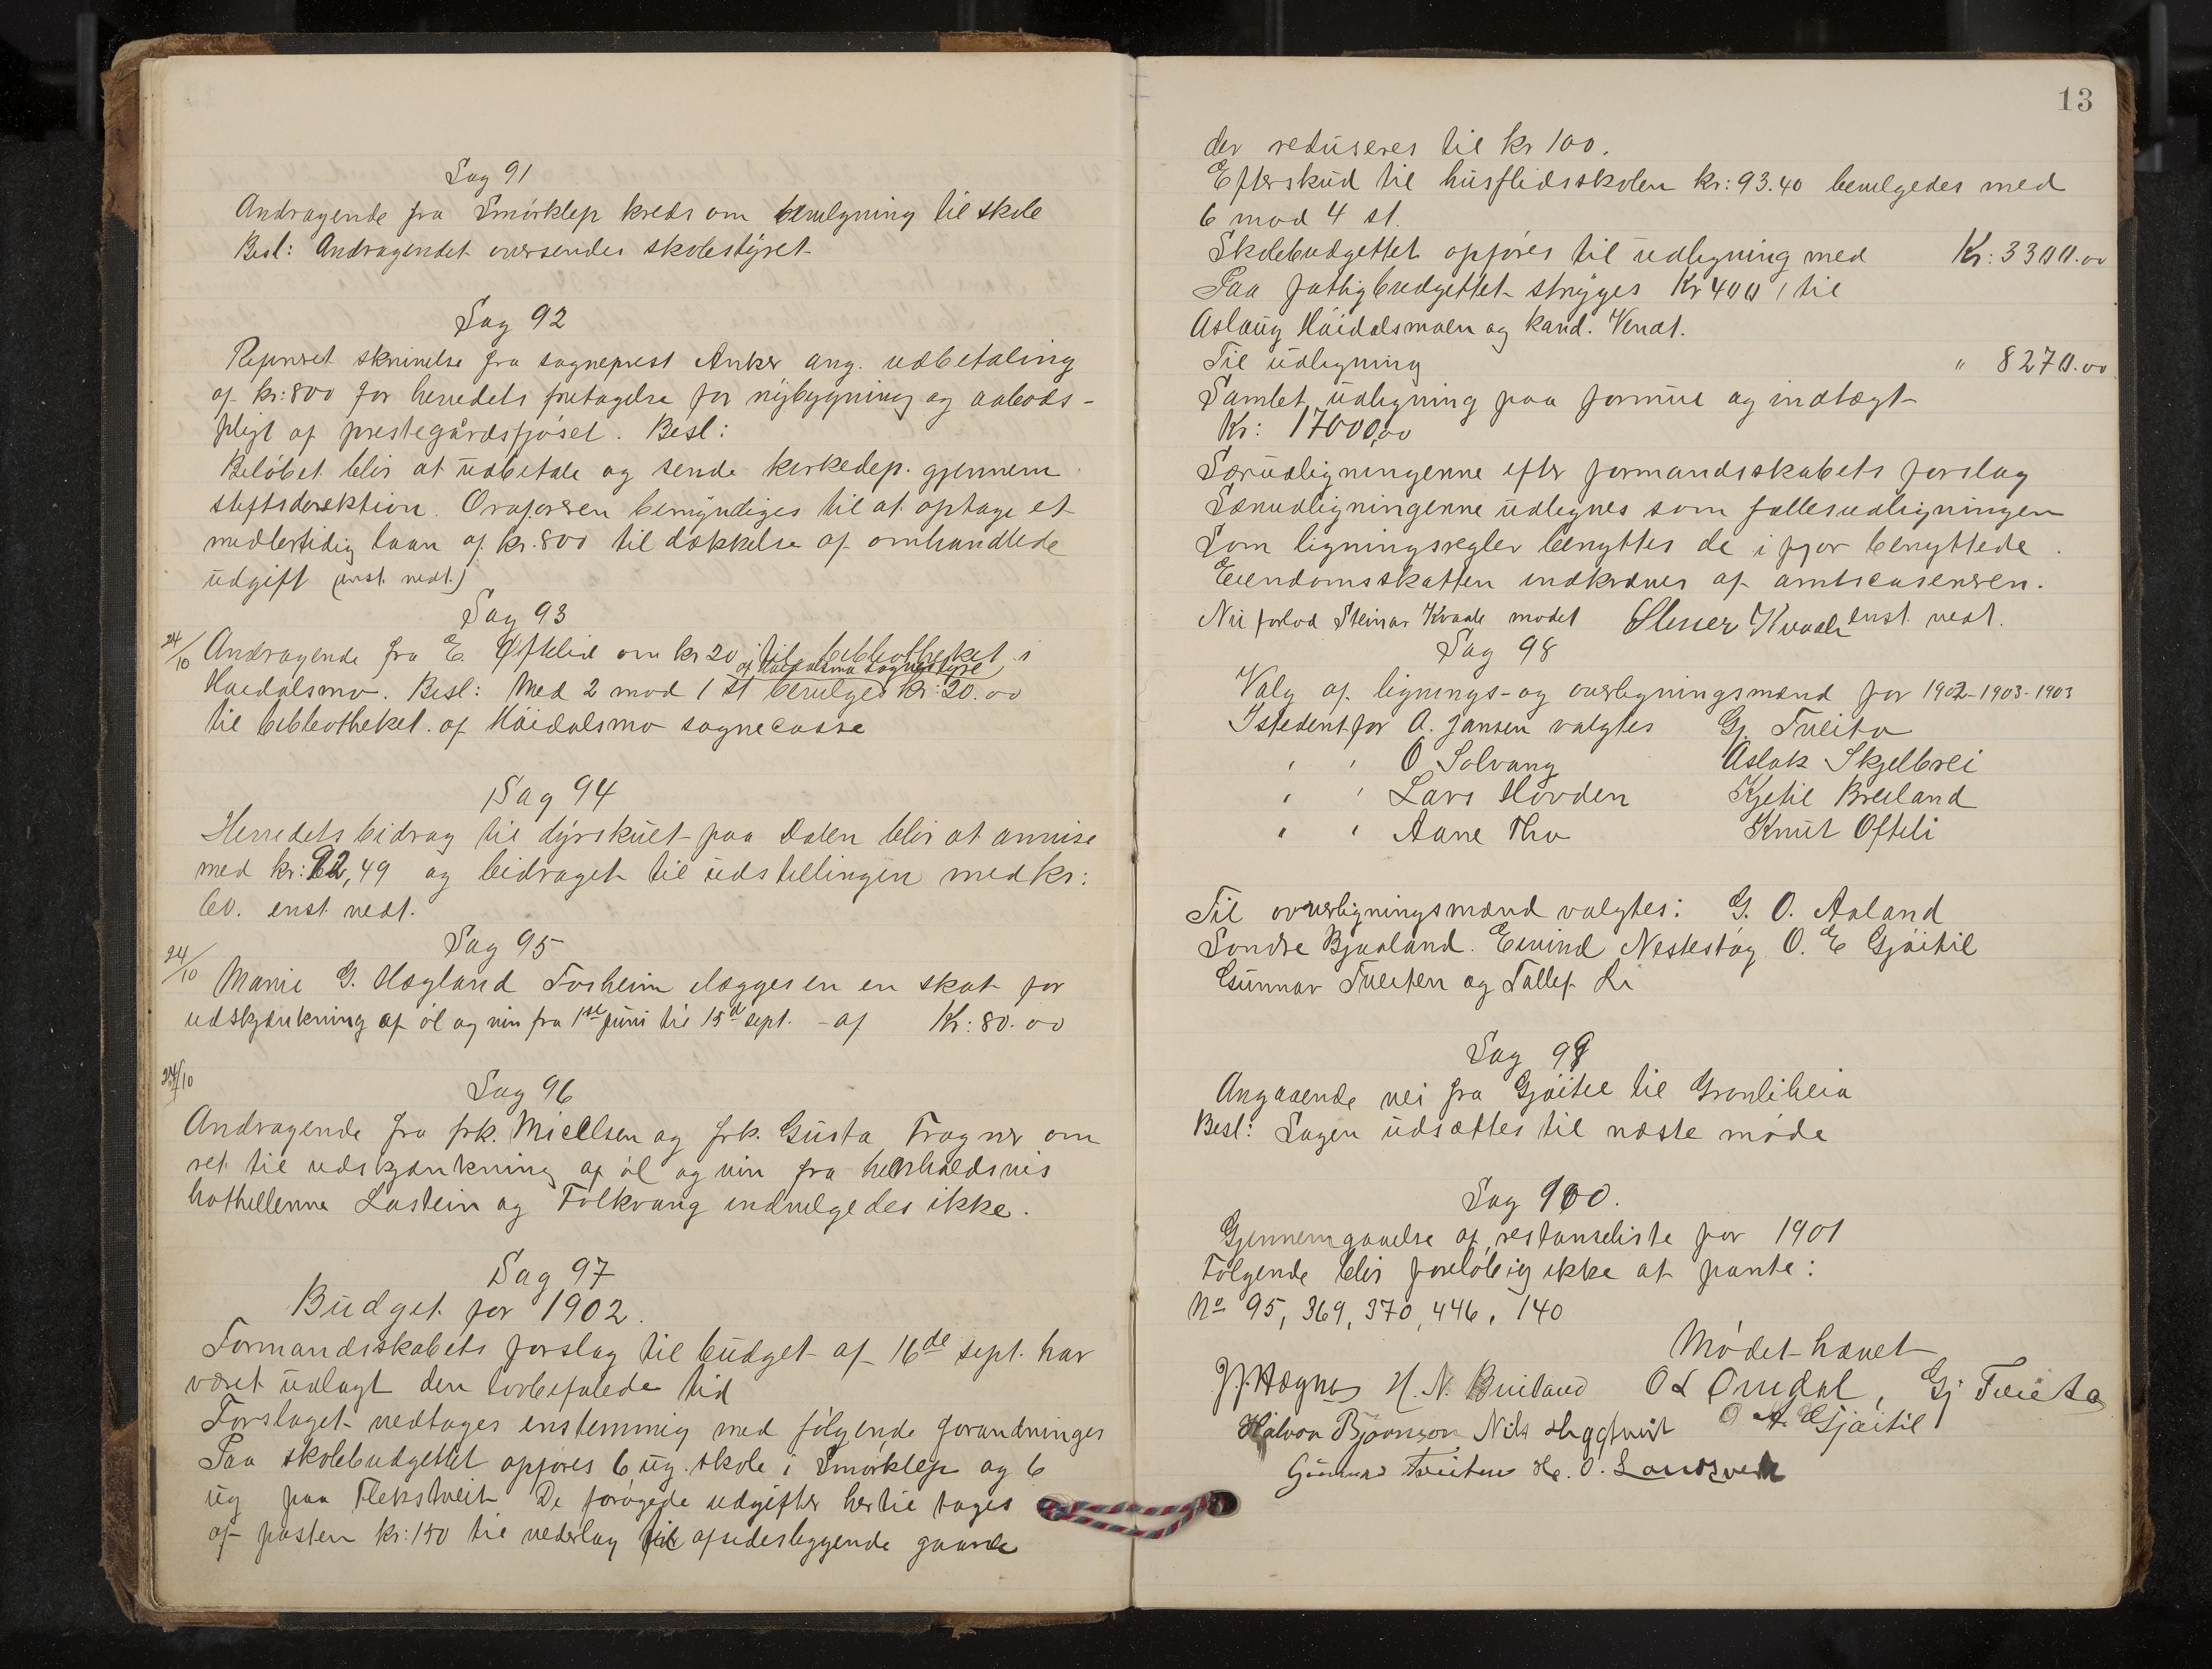 Sag 91
Andragende fra Smörklep kreds om bevilgning til skole
Besl: Andragendet oversendes skolestyret
Sag 92
skrivelse fra sogneprest Anker ang. udbetaling
af kr: 800 for herredets fritagelse for nybygning og aabods-
pligt af prestegårdsfjöset. Besl:
Belöbet blir at udbetale og sende kirkedep. gjennem
stiftsdirektion. Ordföreren bemyndiges til at optage et
midlertidig laan af kr. 800 til dækkelse af omhandlede
udgift (enst. vedt.)
Sag 93
24/10 Andragende fra E. Ofteli om kr 20 til bibliotheket i
af Höidalsmo sognestyre
Höidalsmo. Besl: Med 2 mod 1 st bevilges kr: 20.00
til bibliotheket af Höidalsmo sognecasse
Sag 94
Herredets bidrag til dyrskuet paa Dalen blir at anvise
med kr: 92,49 og bidraget til udstillingen med kr:
60. enst. vedt.
Sag 95
24/10 Marie G. Hægland Forheim ilægges en skat for
udskjænkning af öl og vin fra 1ste juni til 15de sept. - af Kr: 80.00
24/10
Sag 96
Andragende fra frk. Miellsen og frk. Gusta Fragner om
ret til udskjænkning af öl og vin fra henholdsvis
hothellerne Lastein og Folkvang indvilgedes ikke.
Sag 97
Budget for 1902.
Formandsskabets forslag til budget af 16de sept. har
været udlagt den lovbefalede tid
Forslaget vedtages enstemmig med fölgende forandringer
Paa skolebudgettet opföres 6 ug. skole i Smörklep og 6
ug paa Flekstveit De forögede udgifter hertil tages
af posten kr: 150 til vederlag til afsidesliggende gaarde
13
der reduseres til kr 100.
Efterskud til husflidsskolen kr: 93.40 bevilgedes med
6 mod 4 st.
Skolebudgettet opföres til udligning med Kr: 3300.00
Paa fattigbudgettet stryges Kr 400, til
Aslaug Höidalsmoen og kand. Vendt.
Til udligning " 8270.00
Samlet udligning paa formue og indtægt
Kr: 17000,00
Særudligningerne efter formandsskabets forslag
Særudligningerne udlignes som fællesudligningen
Som ligningsregler benyttes de i fjor benyttede.
Eiendomsskatten indkræves af amtscasereren.
Nu forlod Steinar Kvaale mödet Steiner Kvaale enst vedt.
Sag 98
Valg af lignings- og overligningsmænd for 1902-1903-1903
Istedenfor A. Jansen valgtes Gj. Tveito
" " O Solvang Aslak Skjelbrei
" " Lars Hovden Kjetil Breiland
" " Aane Tho Knut Ofteli
Til overligningsmænd valgtes: G. O. Aaland
Sondre Bjaaland. Eivind Nestestög O. E Gjöitil
Gunnar Tveiten og Tallef Li
Sag 99
Angaaende vei fra Gjöitil til Grönliheia
Besl: Sagen udsættes til næste möde
Sag 100.
Gjennemgaaelse af restanseliste for 1901
Fölgende blir forelöbig ikke at pante:
No 95, 369, 370, 446, 140
Mödet hævet
H. N. Breiland O L Omdal, Gj Tveito
Halvor Björnson Nils Heggtveit O A. Gjöitil
Gunnar Tveiten H. O. Landsverk